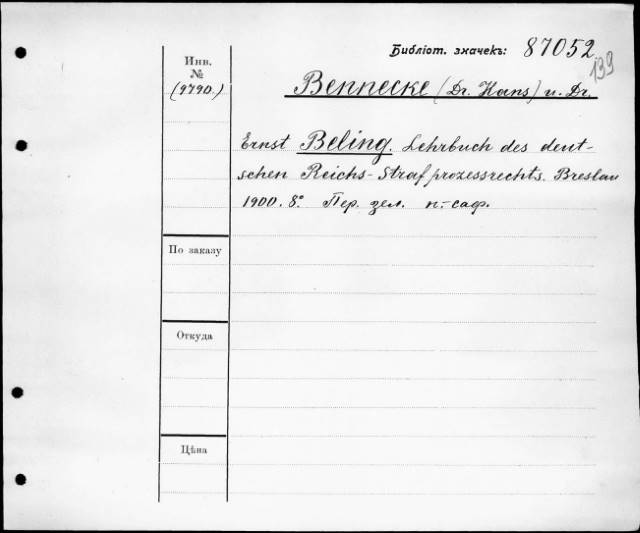 Библіот. значекъ: 87052
139
Инв.
№
(9790.)
Bennecke (Dr. Hans) u. Dr.
Ernst Beling. Lehrbuch des deut-
schen Reichs-Strafprozessrechts. Breslau
1900. 8º. Пер. зел. п.-саф.
По заказу
Откуда
Цѣна